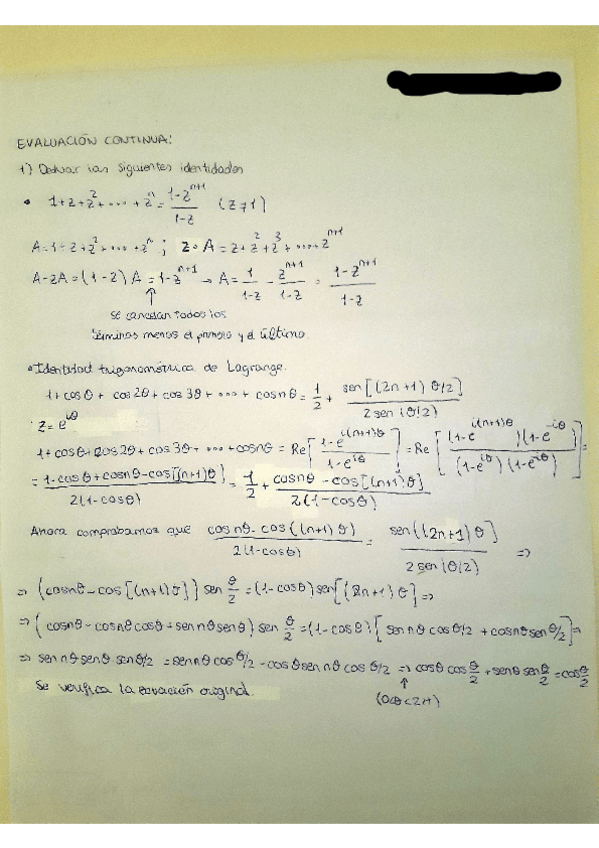 EVALUACIÓN CONTINUA:
1) Deducir las siguientes identidades
• 1+z+z²+....+zⁿ = (1-zⁿ⁺¹)/(1-z) (z≠1)
A=1+z+z²+....+zⁿ ; z·A = z+z²+z³+....+zⁿ⁺¹
A-zA=(1-z)A = 1-zⁿ⁺¹ → A = 1/(1-z) - zⁿ⁺¹/(1-z) = (1-zⁿ⁺¹)/(1-z)
↑
se cancelan todos los
términos menos el primero y el último.
• Identidad trigonométrica de Lagrange.
1+cosθ+cos2θ+cos3θ+....+cosnθ = 1/2 + sen[(2n+1)θ/2]/(2sen(θ/2))
z=e^(iθ)
1+cosθ+cos2θ+cos3θ+....+cosnθ = Re[(1-e^(i(n+1)θ))/(1-e^(iθ))] = Re[((1-e^(i(n+1)θ))(1-e^(-iθ)))/((1-e^(iθ))(1-e^(-iθ)))] =
= (1-cosθ+cosnθ-cos[(n+1)θ])/(2(1-cosθ)) = 1/2 + (cosnθ-cos[(n+1)θ])/(2(1-cosθ))
Ahora comprobamos que (cosnθ-cos((n+1)θ))/(2(1-cosθ)) = sen((2n+1)θ]/(2sen(θ/2)) ⇒
⇒ (cosnθ-cos[(n+1)θ]) sen θ/2 = (1-cosθ)sen[(2n+1)θ] ⇒
⇒ (cosnθ-cosnθcosθ+sennθsenθ) sen θ/2 = (1-cosθ)[sennθcosθ/2+cosnθsenθ/2] ⇒
⇒ sennθsenθsenθ/2 = sennθcosθ/2-cosθsennθcosθ/2 ⇒ cosθcos θ/2+senθsen θ/2 = cos θ/2
Se verifica la ecuación original.
↑
(0<θ<2π)